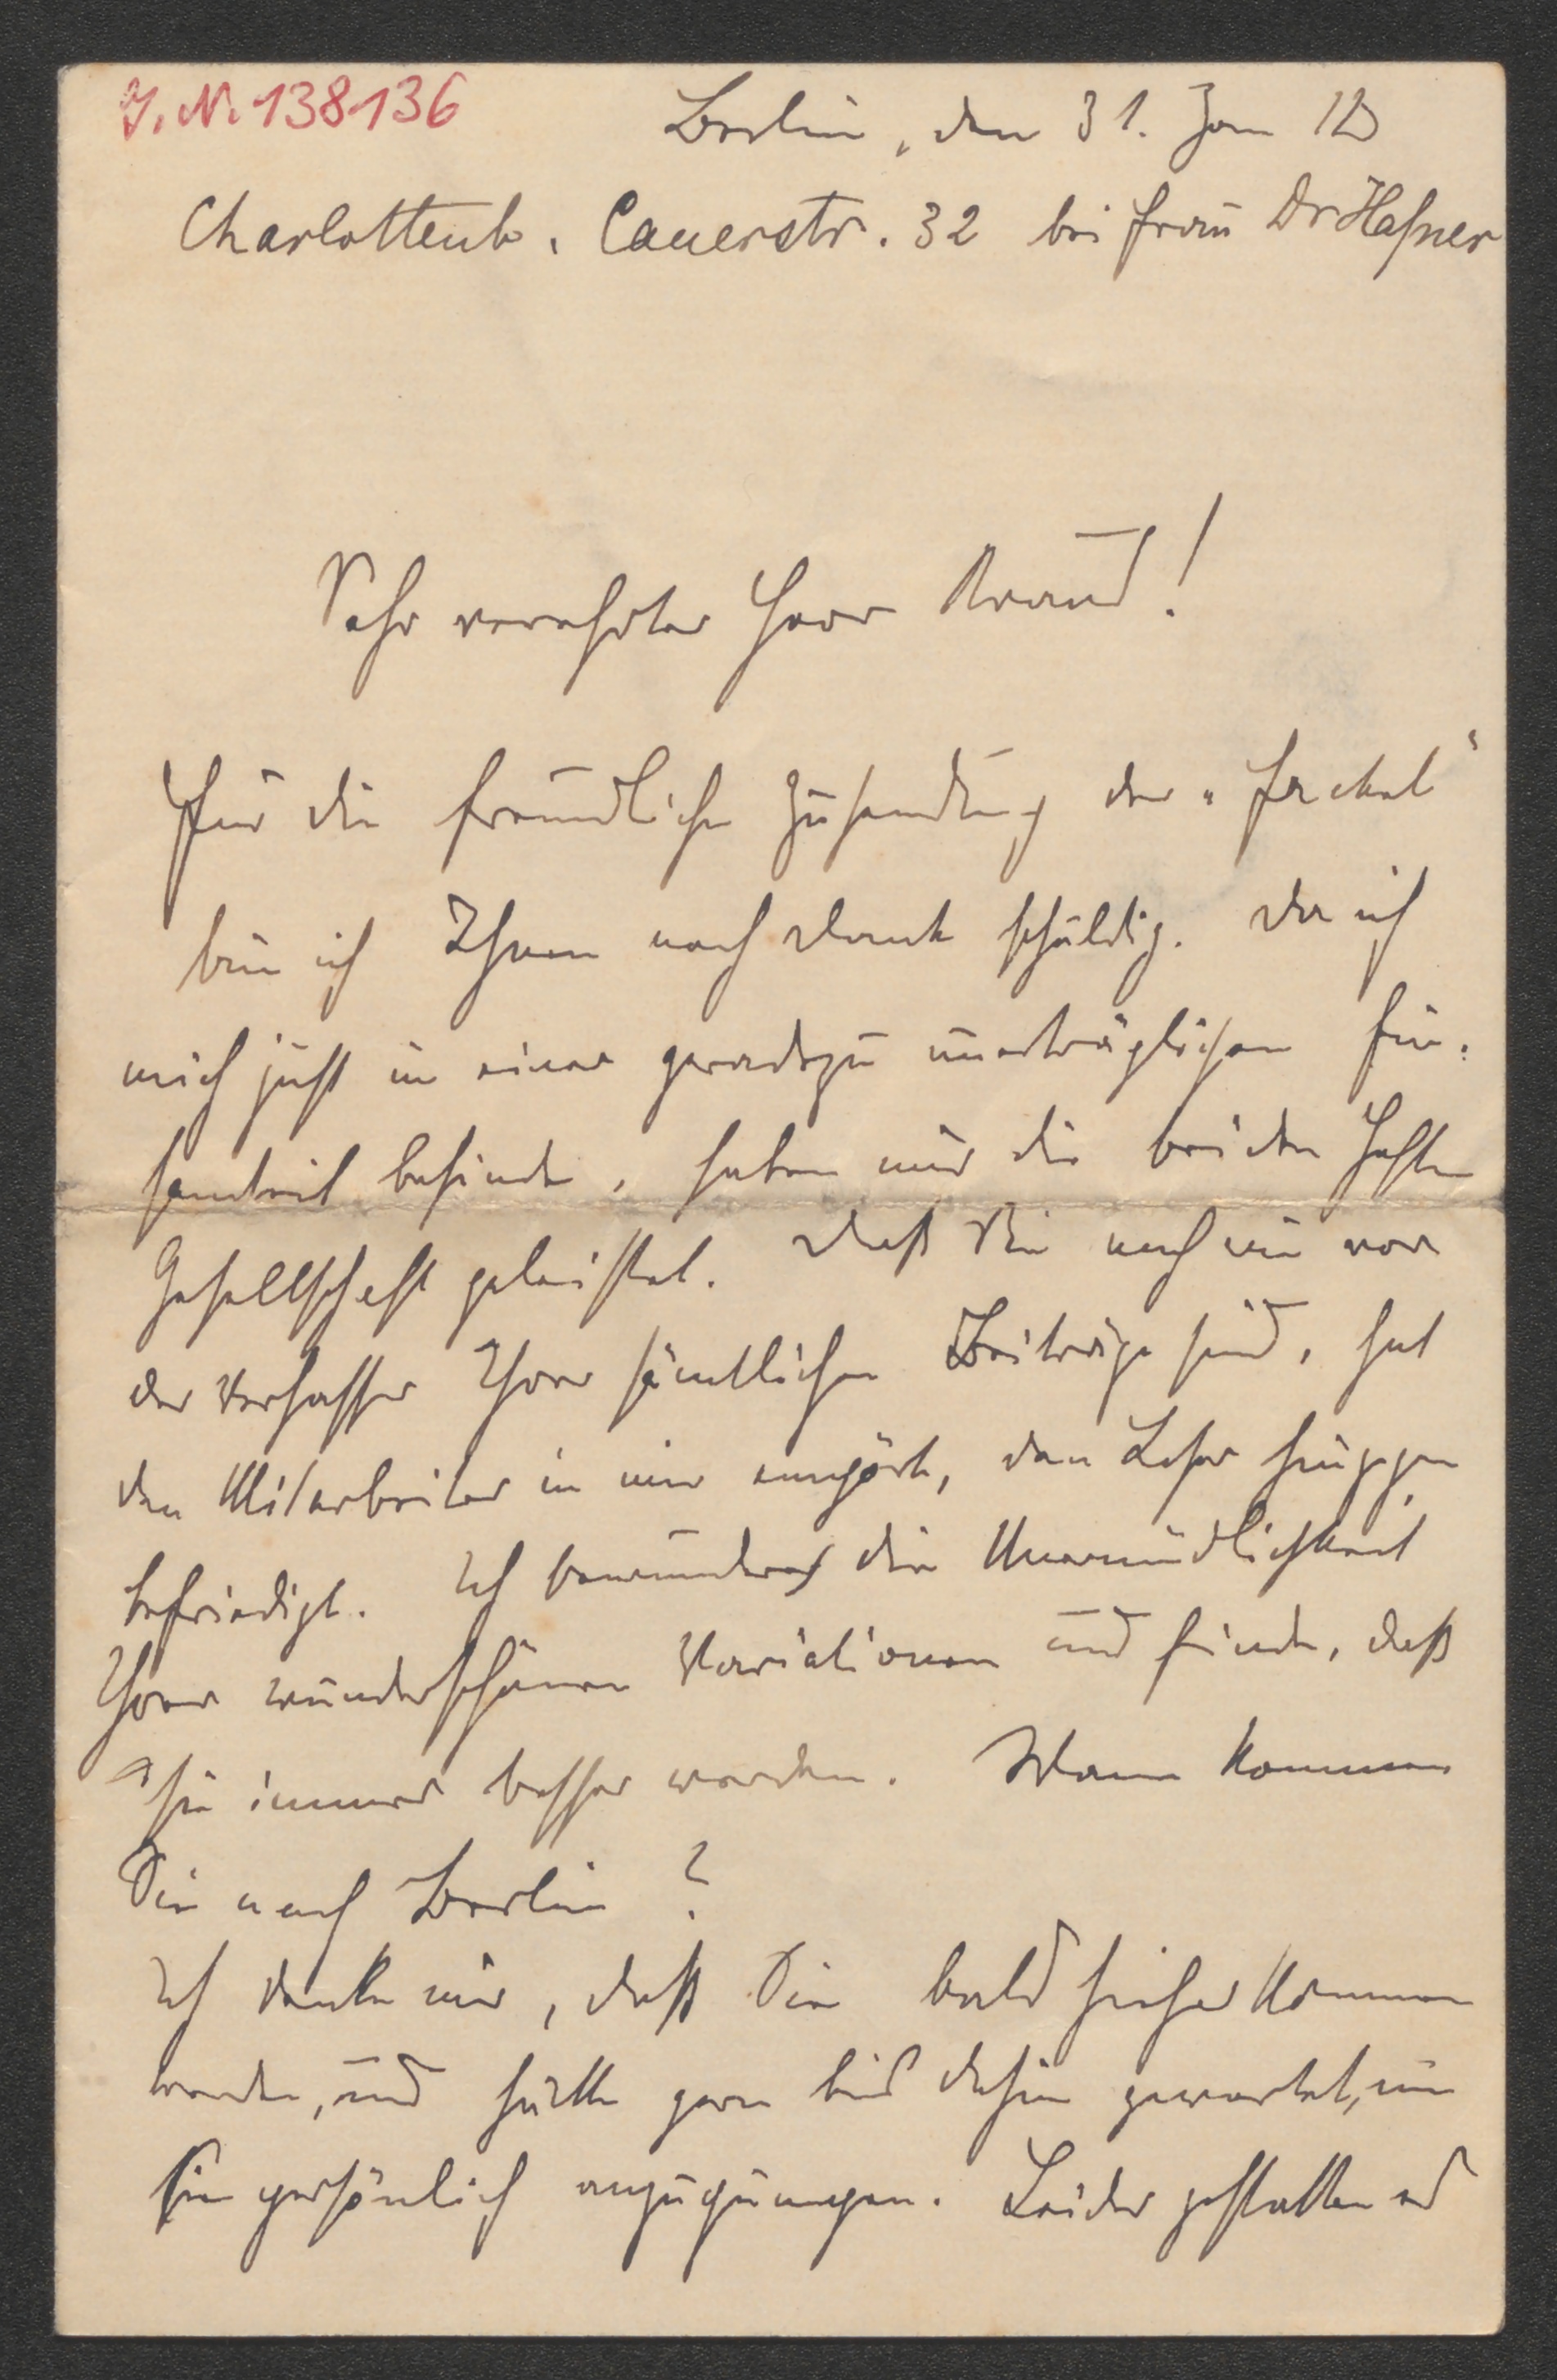 J. N. 138136
Berlin, den 31. Jan 12
Charlottenb. Cauerstr. 32 bei Frau Dr Haßner
Sehr verehrter Herr Kraus!
Für die freundliche Zusendung der „Fackel“
bin ich Ihnen noch Dank schuldig. Da ich
mich just in einer geradezu unerträglichen Ein-
samkeit befinde, haben mir die beiden Hefte
Gesellschaft geleistet. Daß Sie nach wie vor
der Verfasser Ihrer sämtlichen Beiträge sind, hat
den Mitarbeiter in mir empört, den Leser hingegen
befriedigt. Ich bewundere die Unermüdlichkeit
Ihrer wunderschönen Variationen und finde, daß
sie immer besser werden. Wann kommen
Sie nach Berlin?
Ich denke mir, daß Sie bald hieher kommen
werden, und hätte gern bis dahin gewartet, um
Sie persönlich anzupumpen. Leider gestatten es